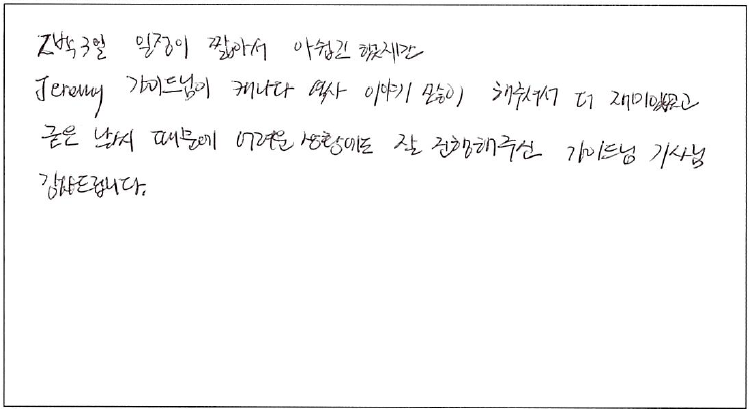 2박3일 일정이 짧아서 아쉽긴 했지만
Jeremy 가이드님이 캐나다 역사 이야기 많이 해주셔서 더 재미있었고
궂은 날씨 때문에 어려운 상황에도 잘 진행해주신 가이드님 기사님
감사드립니다.